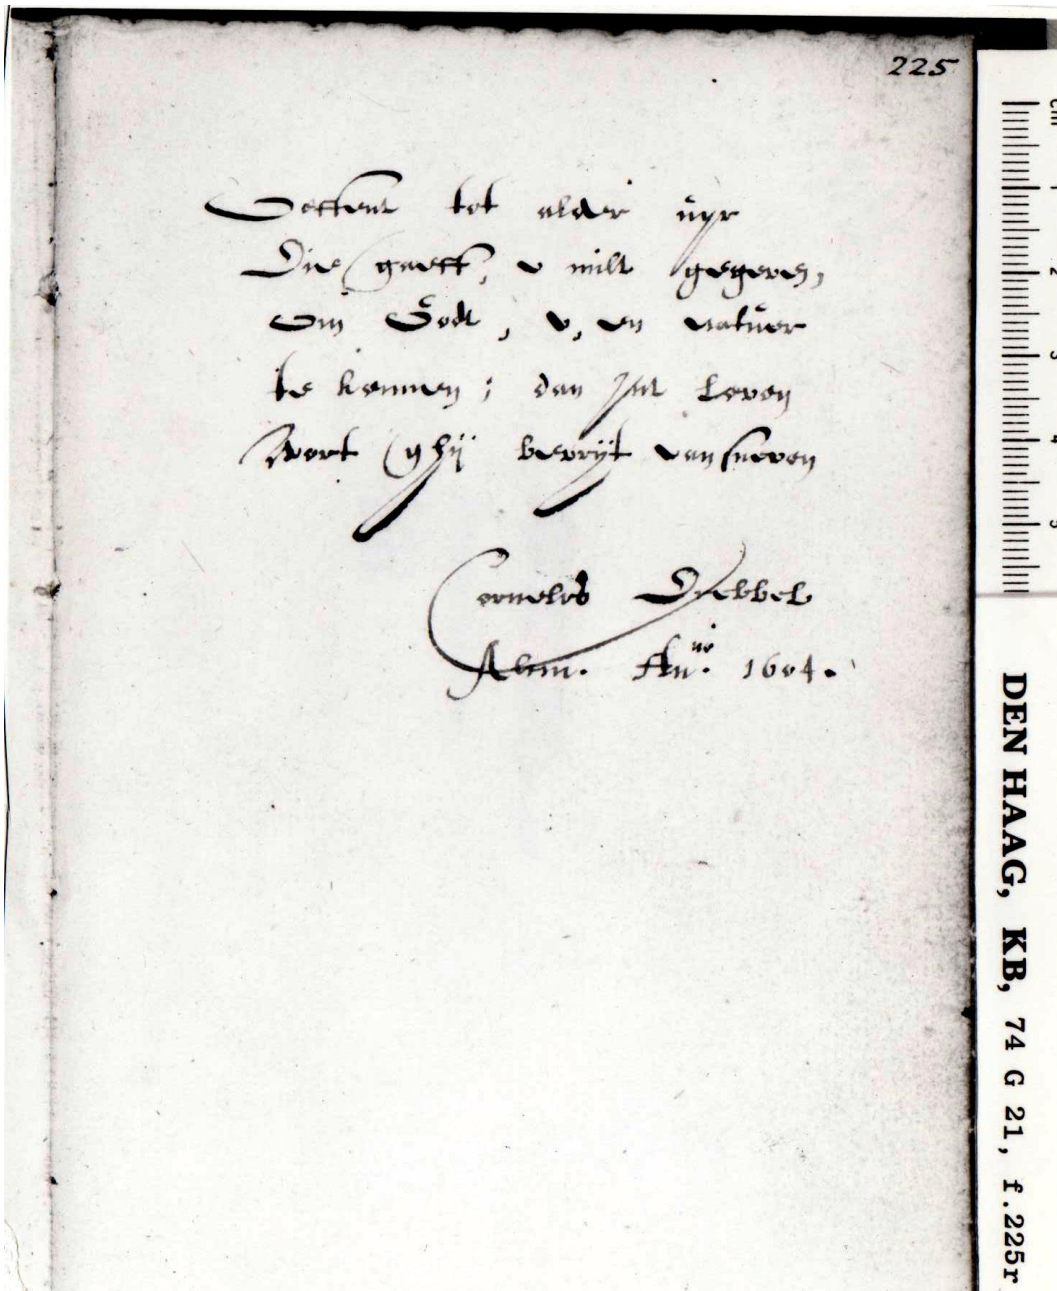 225
Oeffent tot alder uyr
Die gaeff, u milt gegeven,
Om Godt, u, en natuer
te kennen; dan int Leven
Wort ghij bevrijt van sneven
Cornelis Drebbel
Alcm. An.no 1604.
cm 1 2 3 4 5
DEN HAAG, KB, 74 G 21, f.225r